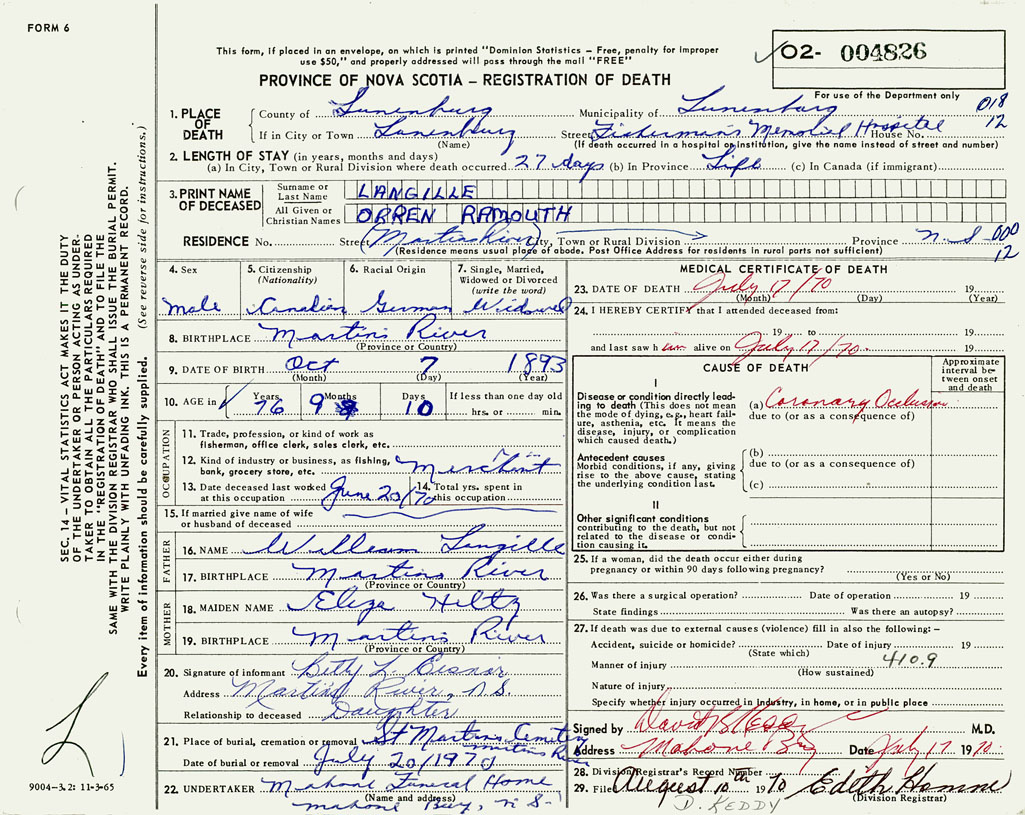 FORM 6
This form, if placed in an envelope, on which is printed "Dominion Statistics – Free, penalty for improper
use $50," and properly addressed will pass through the mail "FREE"
PROVINCE OF NOVA SCOTIA – REGISTRATION OF DEATH
02- 004826
For use of the Department only
018
12
1. PLACE OF DEATH
County of Lunenburg Municipality of Lunenburg
If in City or Town Lunenburg Street Fisherman's Memorial Hospital House No.
(Name) (If death occurred in a hospital or institution, give the name instead of street and number)
2. LENGTH OF STAY (in years, months and days)
(a) In City, Town or Rural Division where death occurred 27 days (b) In Province Life (c) In Canada (if immigrant)
3. PRINT NAME OF DECEASED
Surname or Last Name LANGILLE
All Given or Christian Names ORREN RAMOUTH
RESIDENCE No. Street Martins River City, Town or Rural Division Province N.S. 000
(Residence means usual place of abode. Post Office Address for residents in rural parts not sufficient) 12
4. Sex
Male
5. Citizenship (Nationality)
Canadian
6. Racial Origin
German
7. Single, Married, Widowed or Divorced (write the word)
Widowed
8. BIRTHPLACE Martins River
(Province or Country)
9. DATE OF BIRTH Oct 7 1893
(Month) (Day) (Year)
10. AGE in Years 76 Months 9 Days 10 If less than one day old
hrs. or min.
OCCUPATION
11. Trade, profession, or kind of work as
fisherman, office clerk, sales clerk, etc.
12. Kind of industry or business, as fishing,
bank, grocery store, etc. Merchant
13. Date deceased last worked at this occupation June 20/70
14. Total yrs. spent in this occupation
15. If married give name of wife
or husband of deceased
FATHER
16. NAME William Langille
17. BIRTHPLACE Martins River
(Province or Country)
MOTHER
18. MAIDEN NAME Eliza Hiltz
19. BIRTHPLACE Martins River
(Province or Country)
20. Signature of informant Betty L
Address Martins River, N.S.
Relationship to deceased Daughter
21. Place of burial, cremation or removal St Martins Cemetery
Martins River
Date of burial or removal July 20/1970
22. UNDERTAKER Mahone Funeral Home
(Name and address)
Mahone Bay, N S
MEDICAL CERTIFICATE OF DEATH
23. DATE OF DEATH July 17/70 19
(Month) (Day) (Year)
24. I HEREBY CERTIFY that I attended deceased from:
19 to 19
and last saw h im alive on July 17/70 19
CAUSE OF DEATH
Approximate interval between onset and death
I
Disease or condition directly leading to death (This does not mean the mode of dying, e.g., heart failure, asthenia, etc. It means the disease, injury, or complication which caused death.)
(a) Coronary Occlusion
due to (or as a consequence of)
Antecedent causes
Morbid conditions, if any, giving rise to the above cause, stating the underlying condition last.
(b)
due to (or as a consequence of)
(c)
II
Other significant conditions
contributing to the death, but not related to the disease or condition causing it.
25. If a woman, did the death occur either during
pregnancy or within 90 days following pregnancy?
(Yes or No)
26. Was there a surgical operation? Date of operation 19
State findings Was there an autopsy?
27. If death was due to external causes (violence) fill in also the following: –
Accident, suicide or homicide? Date of injury 19
(State which)
410.9
Manner of injury
(How sustained)
Nature of injury
Specify whether injury occurred in Industry, in home, or in public place
Signed by David M.D.
Address Mahone Bay Date July 17 1970
28. Division Registrar's Record Number
29. Filed August 10th 1970 Edith
(Division Registrar)
D. KEDDY
SEC. 14 – VITAL STATISTICS ACT MAKES IT THE DUTY
OF THE UNDERTAKER OR PERSON ACTING AS UNDER-
TAKER TO OBTAIN ALL THE PARTICULARS REQUIRED
IN THE "REGISTRATION OF DEATH" AND TO FILE THE
SAME WITH THE DIVISION REGISTRAR WHO SHALL ISSUE THE BURIAL PERMIT.
WRITE PLAINLY WITH UNFADING INK. THIS IS A PERMANENT RECORD.
Every item of information should be carefully supplied. (See reverse side for instructions.)
L
9004–3.2: 11-3-65